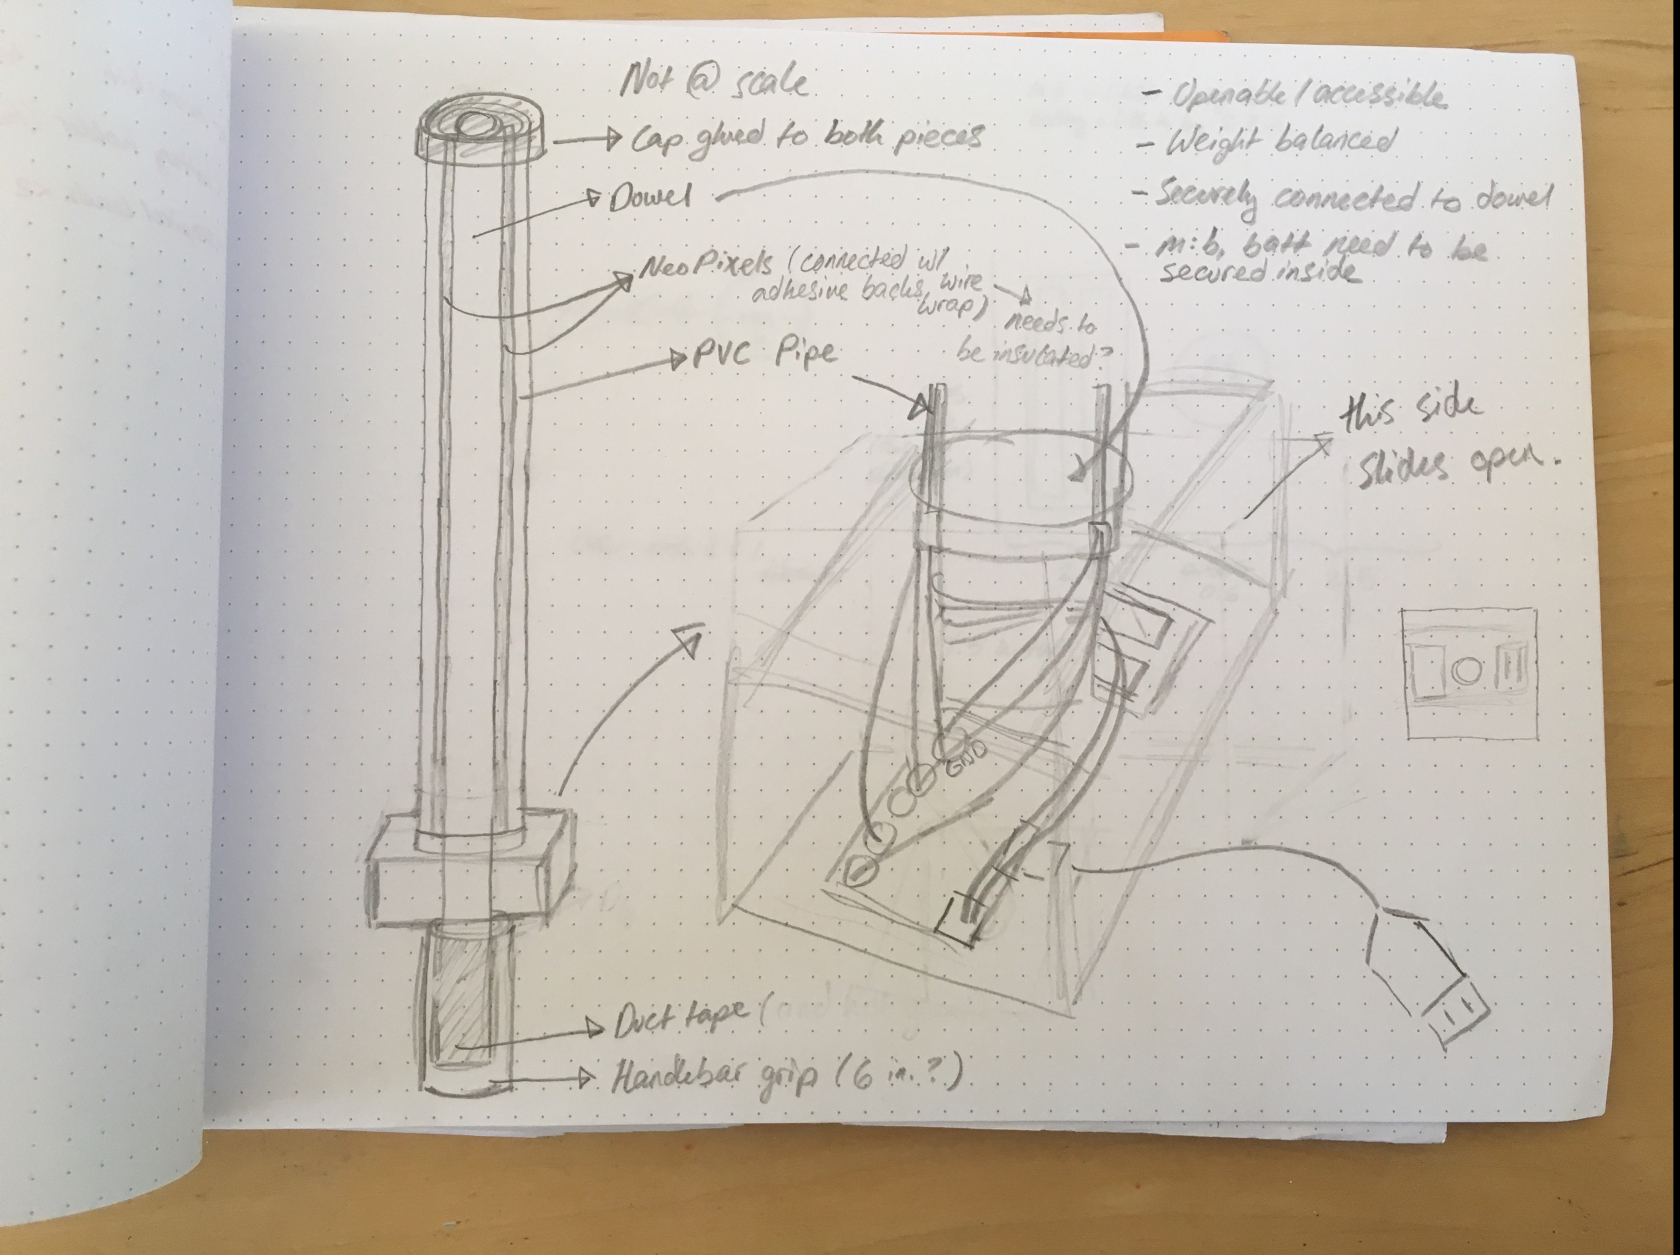 Not @ scale
Cap glued to both pieces
Dowel
NeoPixels (connected w/
adhesive backs, wire
wrap)
needs to
be insulated?
PVC Pipe
- Openable/accessible
- Weight balanced
- Securely connected to dowel
- m:b, batt need to be
secured inside
this side
slides open.
GND
Duct tape (and hot glue
Handlebar grip (6 in.?)